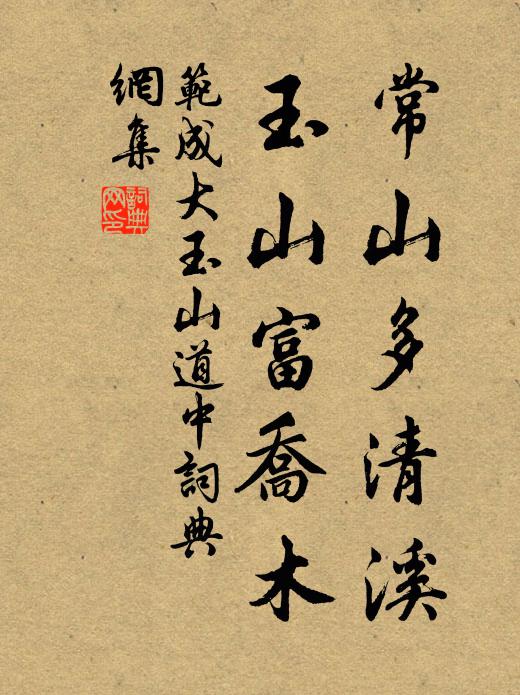 常山多清溪
玉山富喬木
範成大玉山道中詞典
網集
詞典
网印